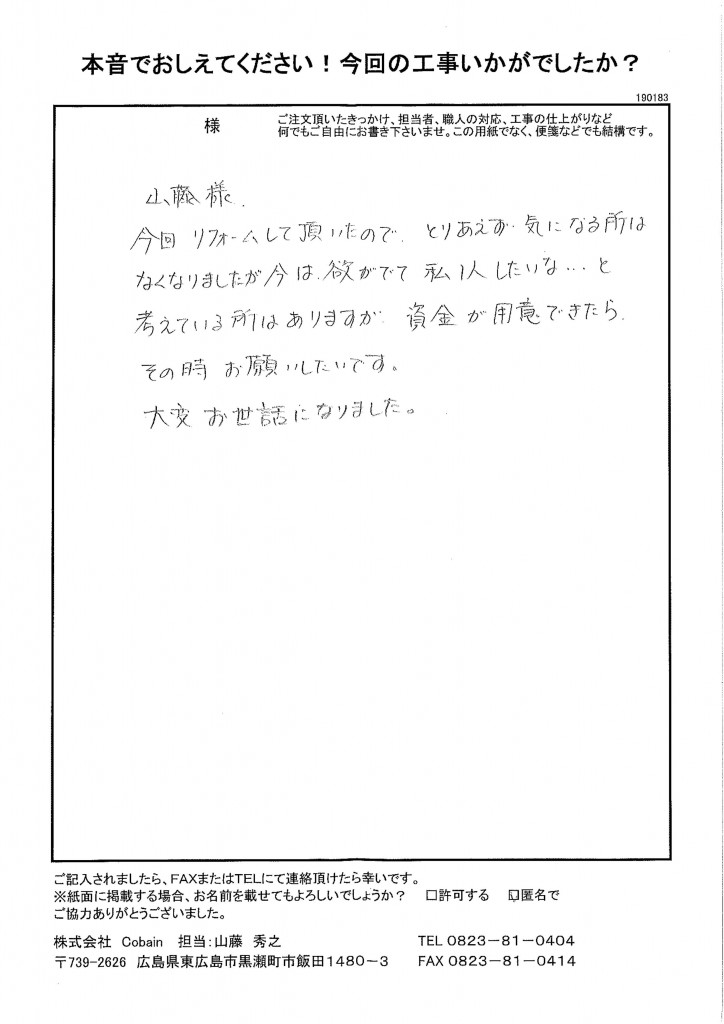 本音でおしえてください！今回の工事いかがでしたか？
190183
様
ご注文頂いたきっかけ、担当者、職人の対応、工事の仕上がりなど
何でもご自由にお書き下さいませ。この用紙でなく、便箋などでも結構です。
山藤様.
今回 リフォームして頂いたので、とりあえず、気になる所は
なくなりましたが今は、欲がでて 私1人したいな…と
考えている所はありますが、資金が用意できたら、
その時 お願いしたいです。
大変 お世話になりました。
ご記入されましたら、FAXまたはTELにて連絡頂けたら幸いです。
※紙面に掲載する場合、お名前を載せてもよろしいでしょうか？ □許可する □匿名で
ご協力ありがとうございました。
株式会社 Cobain 担当：山藤 秀之 TEL 0823－81－0404
〒739-2626 広島県東広島市黒瀬町市飯田1480－3 FAX 0823－81－0414